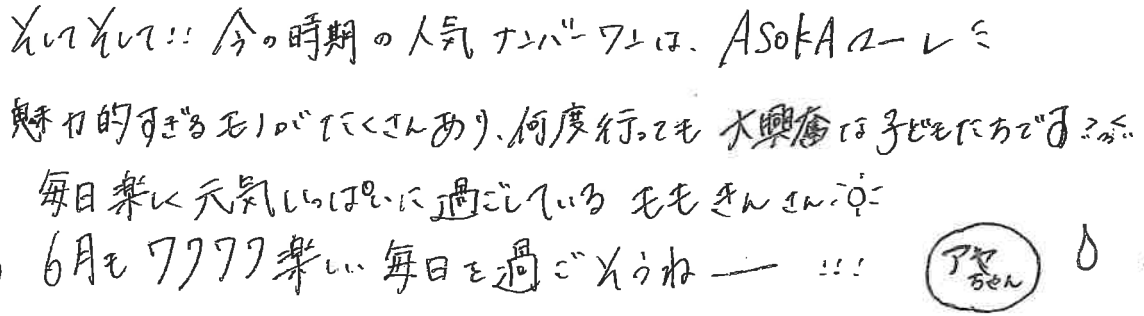 そしてそして!! 今の時期の人気ナンバーワンは、ASOKAユールミ
魅力的すぎるモノがたくさんあり、何度行っても大興奮な子どもたちです
毎日楽しく元気いっぱいに過ごしているももきんさん
6月もワクワク楽しい毎日を過ごそうねー!!!
アヤちゃん